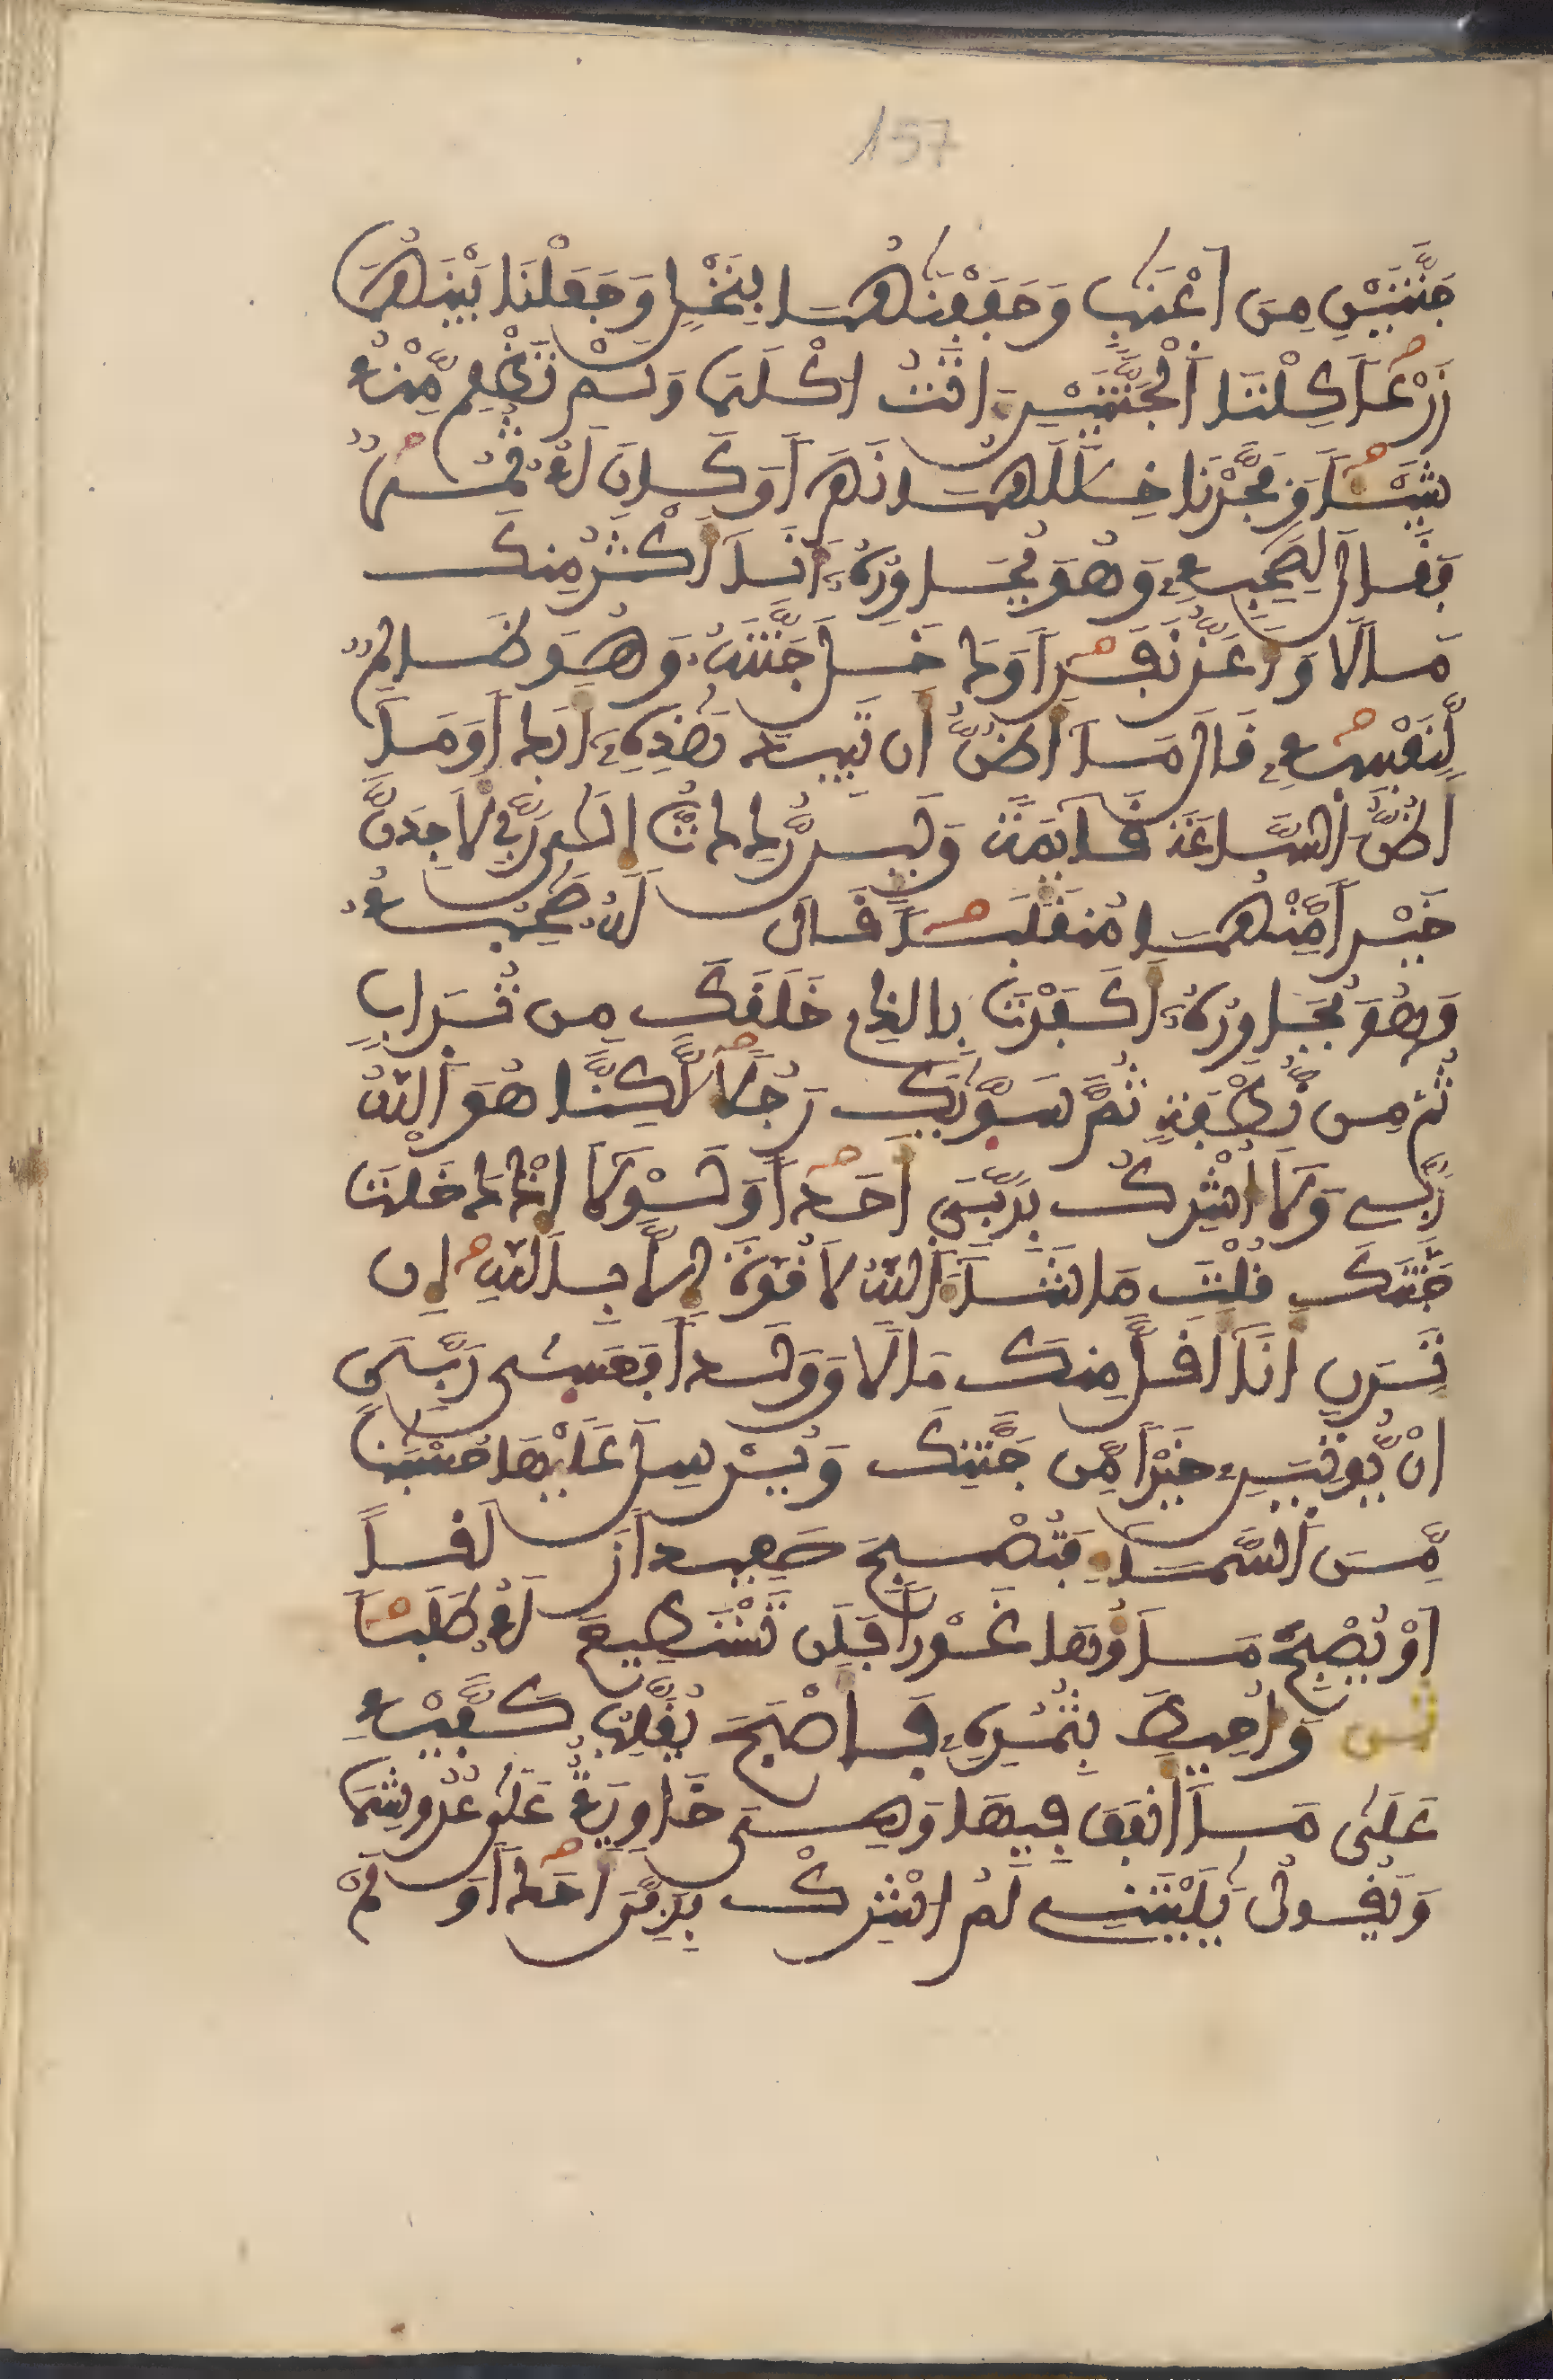 157
جَنَّتَيْنِ مِنَ اَعْنَٰبٍ وَحَفَفْنَٰهُمَا بِنَخْلٍ وَجَعَلْنَا بَيْنَهُمَا
زَرْعاً كِلْتَا اَ۬لْجَنَّتَيْنِ ءَاتَتُ اكْلَهَا وَلَمْ تَظْلِم مِّنْهُ
شَيْـاً وَفَجَّرْنَا خِلَٰلَهُمَا نَهَراً وَكَانَ لَهُۥ ثُمُرٌ
فَقَالَ لِصَٰحِبِهِۦ وَهُوَ يُحَاوِرُهُۥٓ أَنَآ أَكْثَرُ مِنكَ
مَالًا وَأَعَزُّ نَفَراً وَدَخَلَ جَنَّتَهُۥ وَهُوَ ظَالِمٌ
لِّنَفْسِهِۦ قَالَ مَآ أَظُنُّ أَن تَبِيدَ هَٰذِهِۦٓ أَبَداً وَمَآ
أَظُنُّ اُ۬لسَّاعَةَ قَآئِمَةً وَلَئِن رُّدِدتُّ إِلَىٰ رَبِّي لَأَجِدَنَّ
خَيْراً مِّنْهُمَا مُنقَلَباً قَالَ لَهُۥ صَٰحِبُهُۥ
وَهُوَ يُحَاوِرُهُۥٓ أَكَفَرْتَ بِالذِے خَلَقَكَ مِن تُرَابٍ
ثُمَّ مِن نُّطْفَةٍ ثُمَّ سَوَّىٰكَ رَجُلاً لَّٰكِنَّا هُوَ اَ۬للَّهُ
رَبِّے وَلَآ أُشْرِكُ بِرَبِّيَ أَحَداً وَلَوْلَآ إِذْ دَخَلْتَ
جَنَّتَكَ قُلْتَ مَا شَآءَ اَ۬للَّهُ لَا قُوَّةَ إِلَّا بِاللَّهِ إِن
تَرَنِ أَنَآ أَقَلَّ مِنكَ مَالًا وَوَلَداً فَعَسَىٰ رَبِّيَ
أَنْ يُّوتِيَنِۦ خَيْراً مِّن جَنَّتِكَ وَيُرْسِلَ عَلَيْهَا حُسْبَٰناً
مِّنَ اَ۬لسَّمَآءِ فَتُصْبِحَ صَعِيداً زَلَقاً
اَوْ يُصْبِحَ مَآؤُهَا غَوْراً فَلَن تَسْتَطِيعَ لَهُۥ طَلَباً
ثمن وَأُحِيطَ بِثُمُرِهِۦ فَأَصْبَحَ يُقَلِّبُ كَفَّيْهِ
عَلَىٰ مَآ أَنفَقَ فِيهَا وَهِيَ خَاوِيَةٌ عَلَىٰ عُرُوشِهَا
وَيَقُولُ يَٰلَيْتَنِے لَمُ اشْرِكْ بِرَبِّيَ أَحَداً وَلَمْ